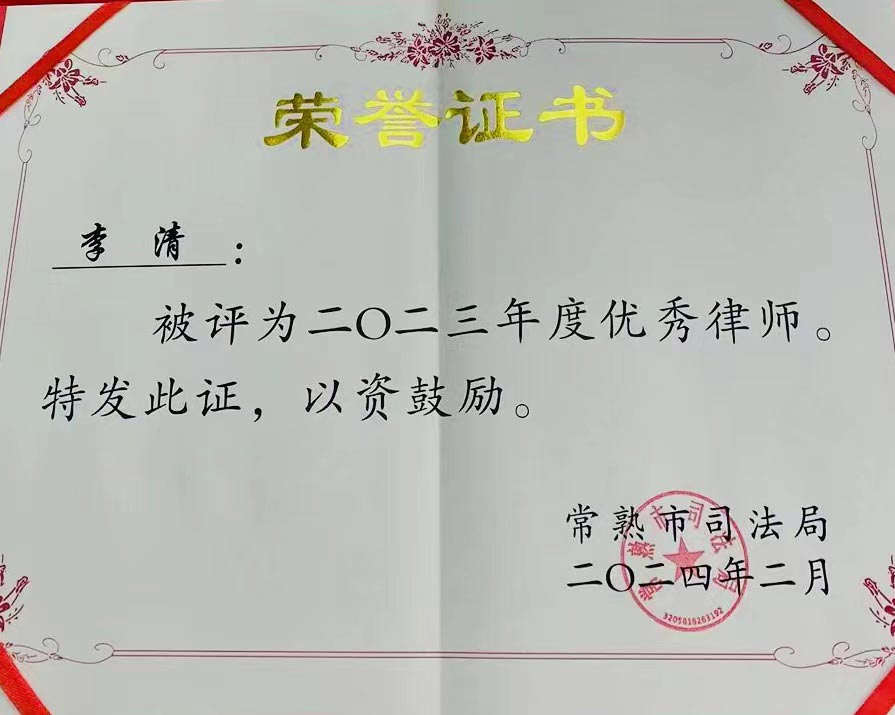 荣誉证书
李 清：
被评为二〇二三年度优秀律师。
特发此证，以资鼓励。
常熟市司法局
二〇二四年二月
常熟市司法局
3205818263192